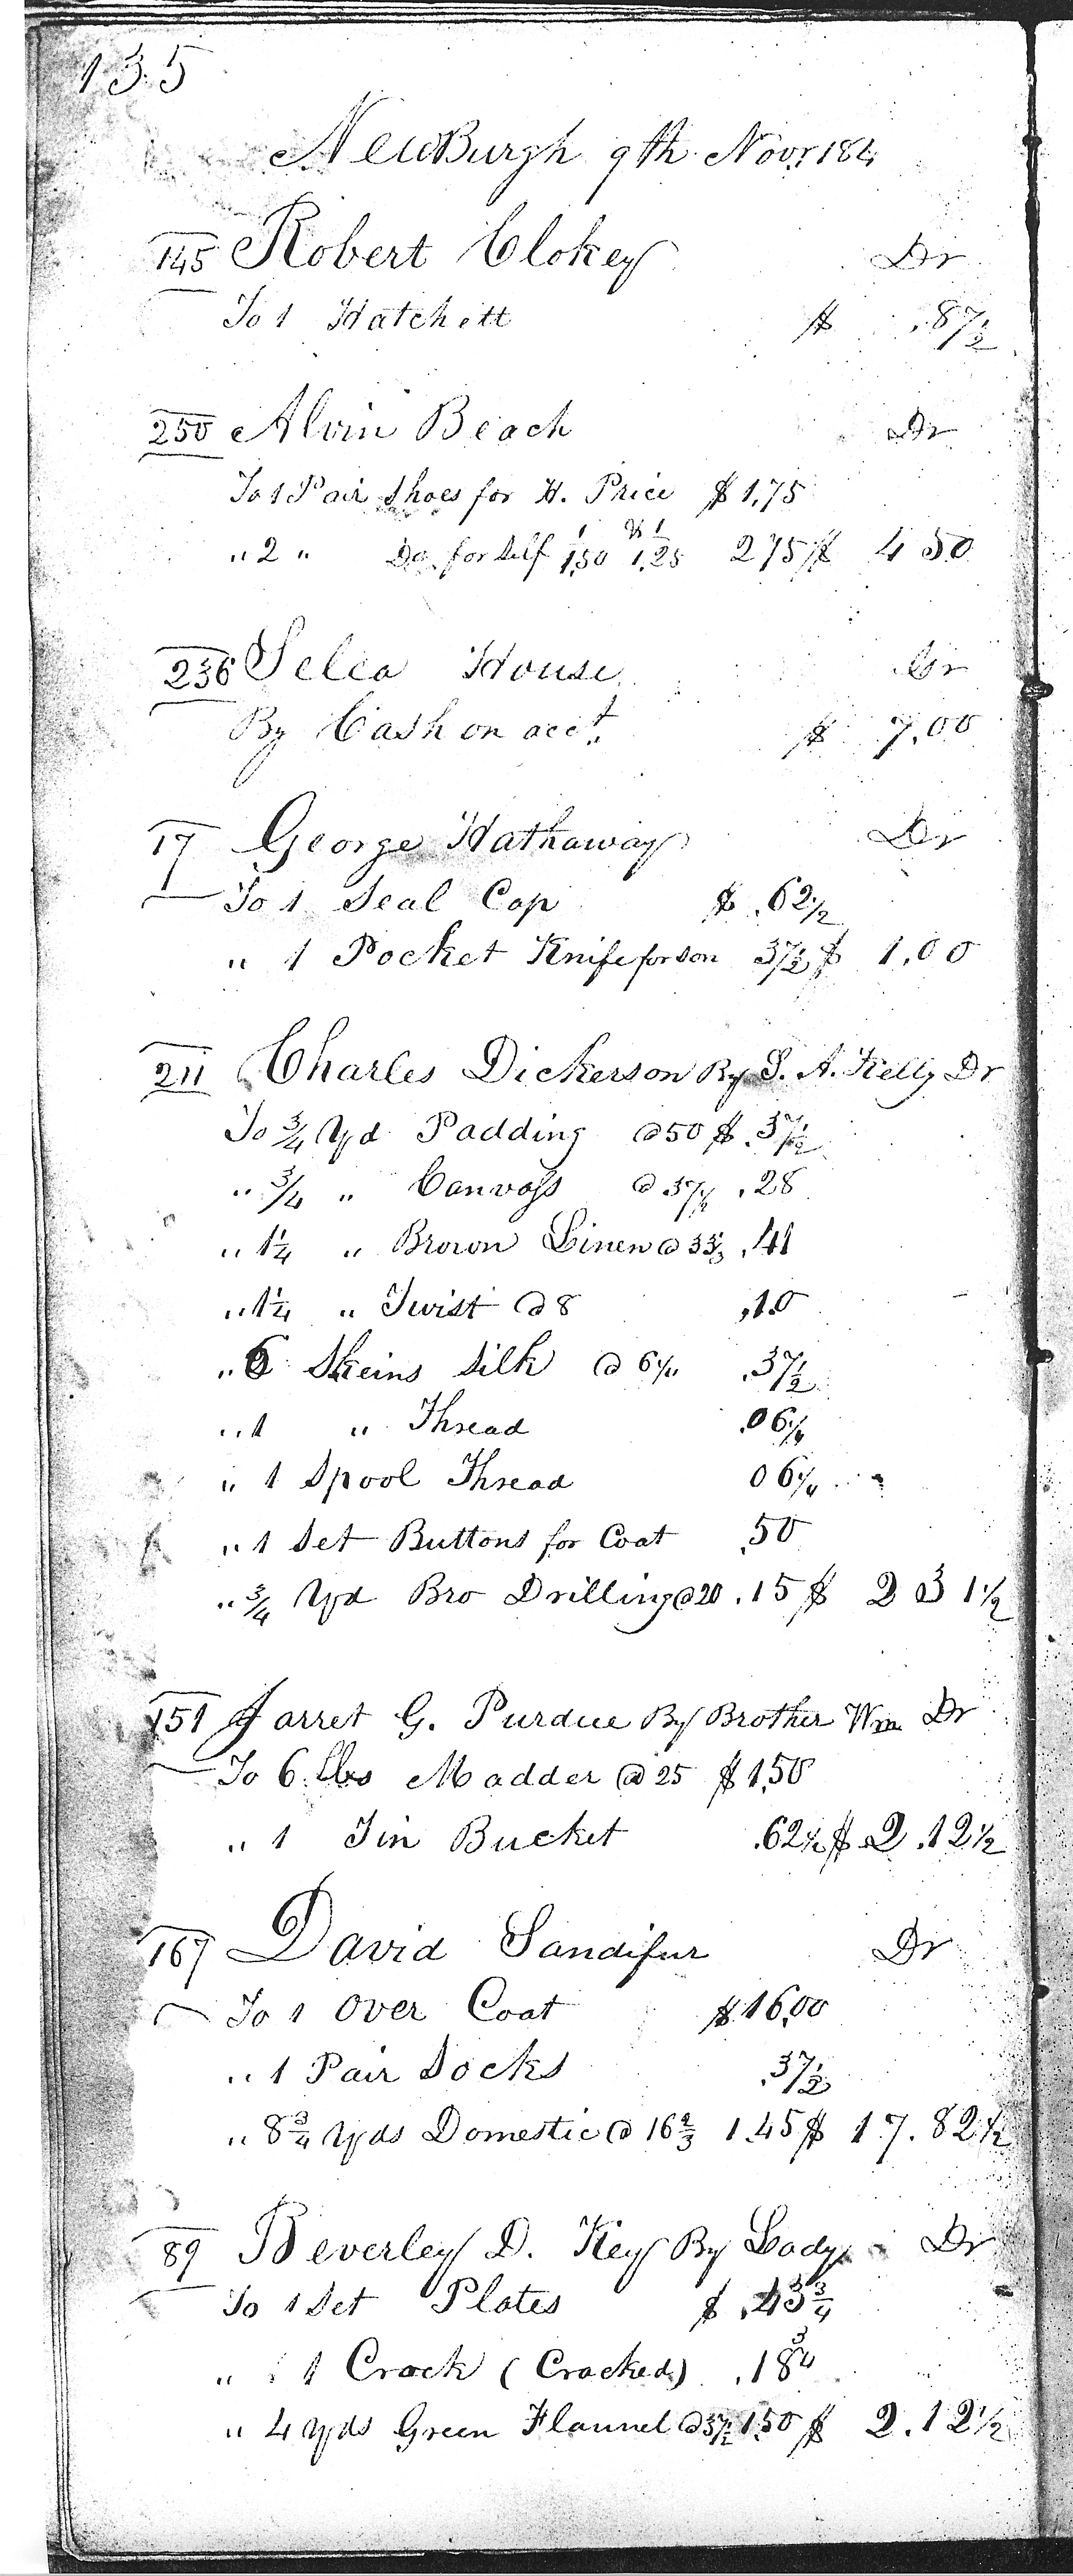 135
NewBurgh 9th Novr. 184
145 Robert Clokey Dr
To 1 Hatchett $ .87½
250 Alvin Beach Dr
To 1 Pair Shoes for H. Price $ 1,75
" 2 " Do. for Self 1/1,50 & 1/1,25 275 $ 4 50
236 Selea House Cr
By Cash on acct. $ 7,00
17 George Hathaway Dr
To 1 Seal Cap $ .62½
" 1 Pocket Knife for Son 37½ $ 1,00
211 Charles Dickerson By S. A. Kelly Dr
To ¾ Yd Padding @ 50 $ .37½
" ¾ " Canvass @ 37½ .28
" 1¼ " Brown Linen @ 33⅓ .41
" 1¼ " Twist @ 8 ,10
" 6 Skeins Silk @ 6¼ .37½
" 1 " Thread .06¼
" 1 Spool Thread 06¼
" 1 Set Buttons for Coat .50
" ¾ Yd Bro Drilling @ 20 .15 $ 2 31½
151 Jarret G. Purdue By Brother Wm Dr
To 6 lbs Madder @ 25 $ 1,50
" 1 Tin Bucket .62½ $ 2.12½
167 David Sandifur Dr
To 1 Over Coat $ 16,00
" 1 Pair Socks .37½
" 8¾ Yds Domestic @ 16⅔ 1.45 $ 17.82½
89 Beverley D. Key By Lady Dr
To 1 Set Plates $ .43¾
" 1 Crock (Cracked) .18¾
" 4 Yds Green Flannel @ 37½ 1.50 $ 2.12½